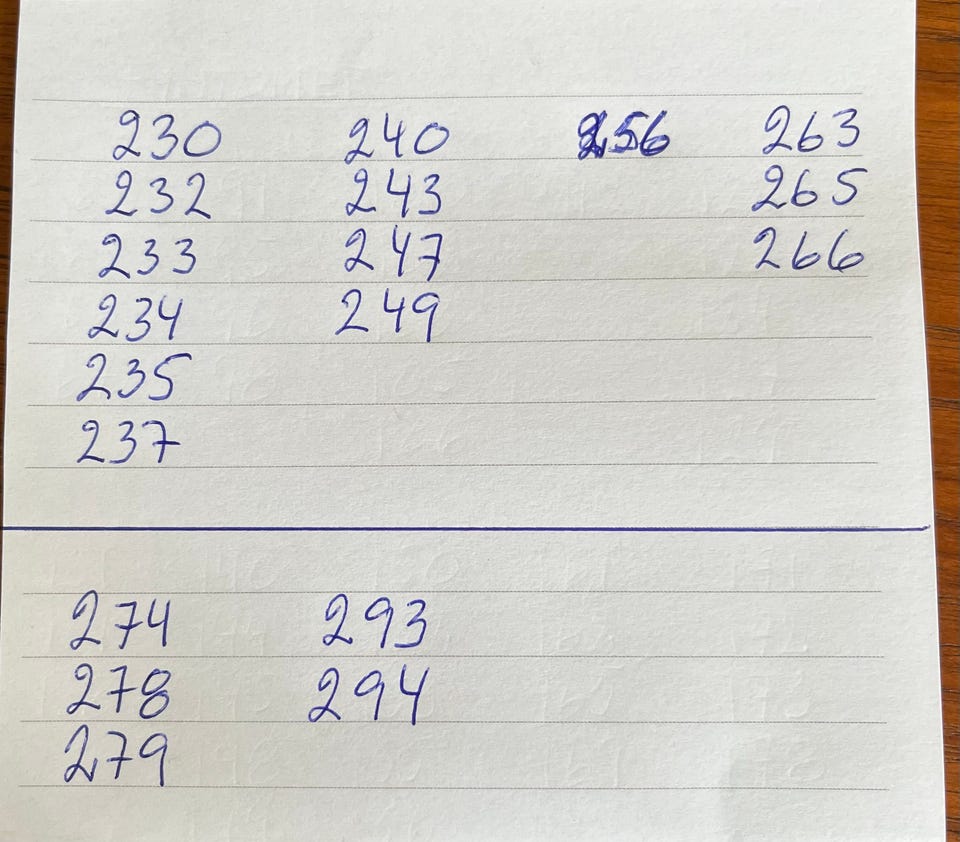 230 240 256 263
232 243 265
233 247 266
234 249
235
237
274 293
278 294
279